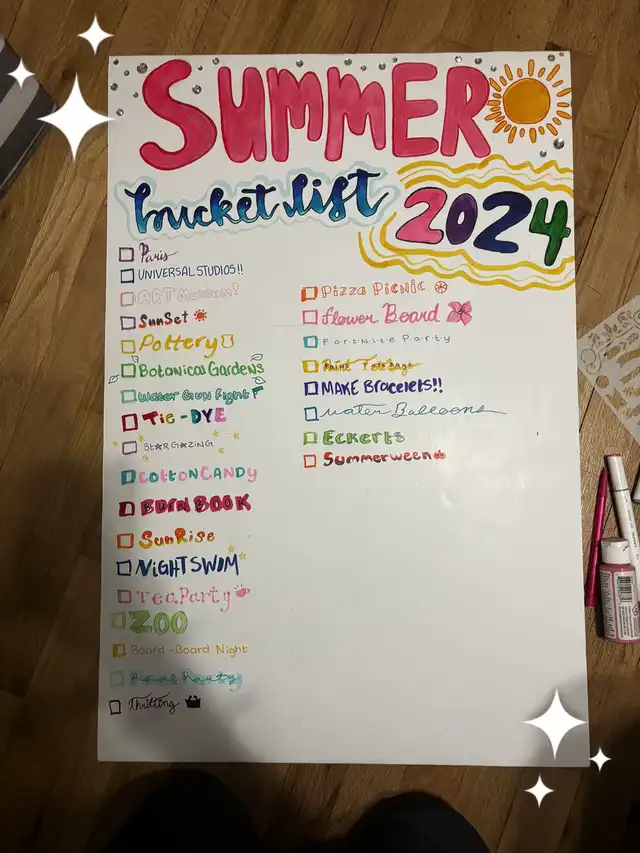 SUMMER
bucket list
2024
Paris
UNIVERSAL STUDIOS!!
ART Museum!
SunSet
Pottery
Botanical Gardens
Water Gun Fight
Tie-DYE
StARGAZiNG
COTTON CANDY
BURN BOOK
SunRise
NiGHT SWIM
Tea Party
ZOO
Board-Board Night
Thrifting
Pizza Picnic
Flower Board
Fortnite Party
PAiNT Tote Bags
MAKE Bracelets!!
Water Balloons
Eckerts
Summerween